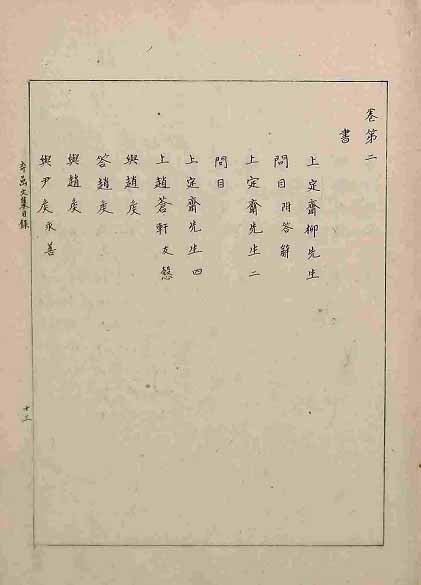 卷第二
書
上定齋柳先生
問目附答辭
上定齋先生二
問目
上定齋先生四
上趙蒼軒友愨
與趙矦
答趙矦
與趙矦
與尹矦永善
文集目錄
十三